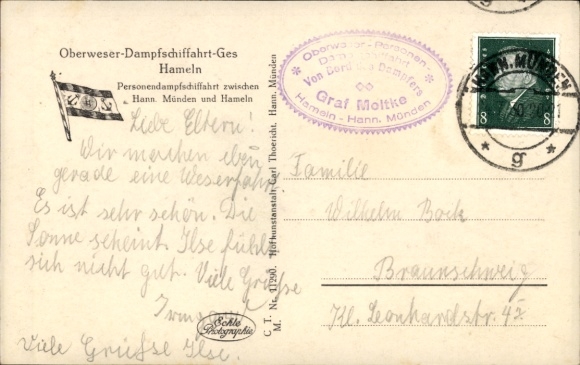 Oberweser-Dampfschiffahrt-Ges
Hameln
Personendampfschiffahrt zwischen
Hann. Münden und Hameln
Liebe Eltern!
Wir machen eben
gerade eine Weserfahrt.
Es ist sehr schön. Die
Sonne scheint. Ilse fühlt
sich nicht gut. Viele Grüsse
Irmg
Viele Grüsse Ilse.
Echte
Photographie
C. T. M. Nr. 11290. Hofkunstanstalt Carl Thoericht, Hann. Münden
Oberweser-Personen-
Dampfschiffahrt
Von Bord des Dampfers
Graf Moltke
Hameln - Hann. Münden
HANN. MÜNDEN
g
8 8
Familie
Wilhelm Bock
Braunschweig
Kl. Leonhardstr. 42